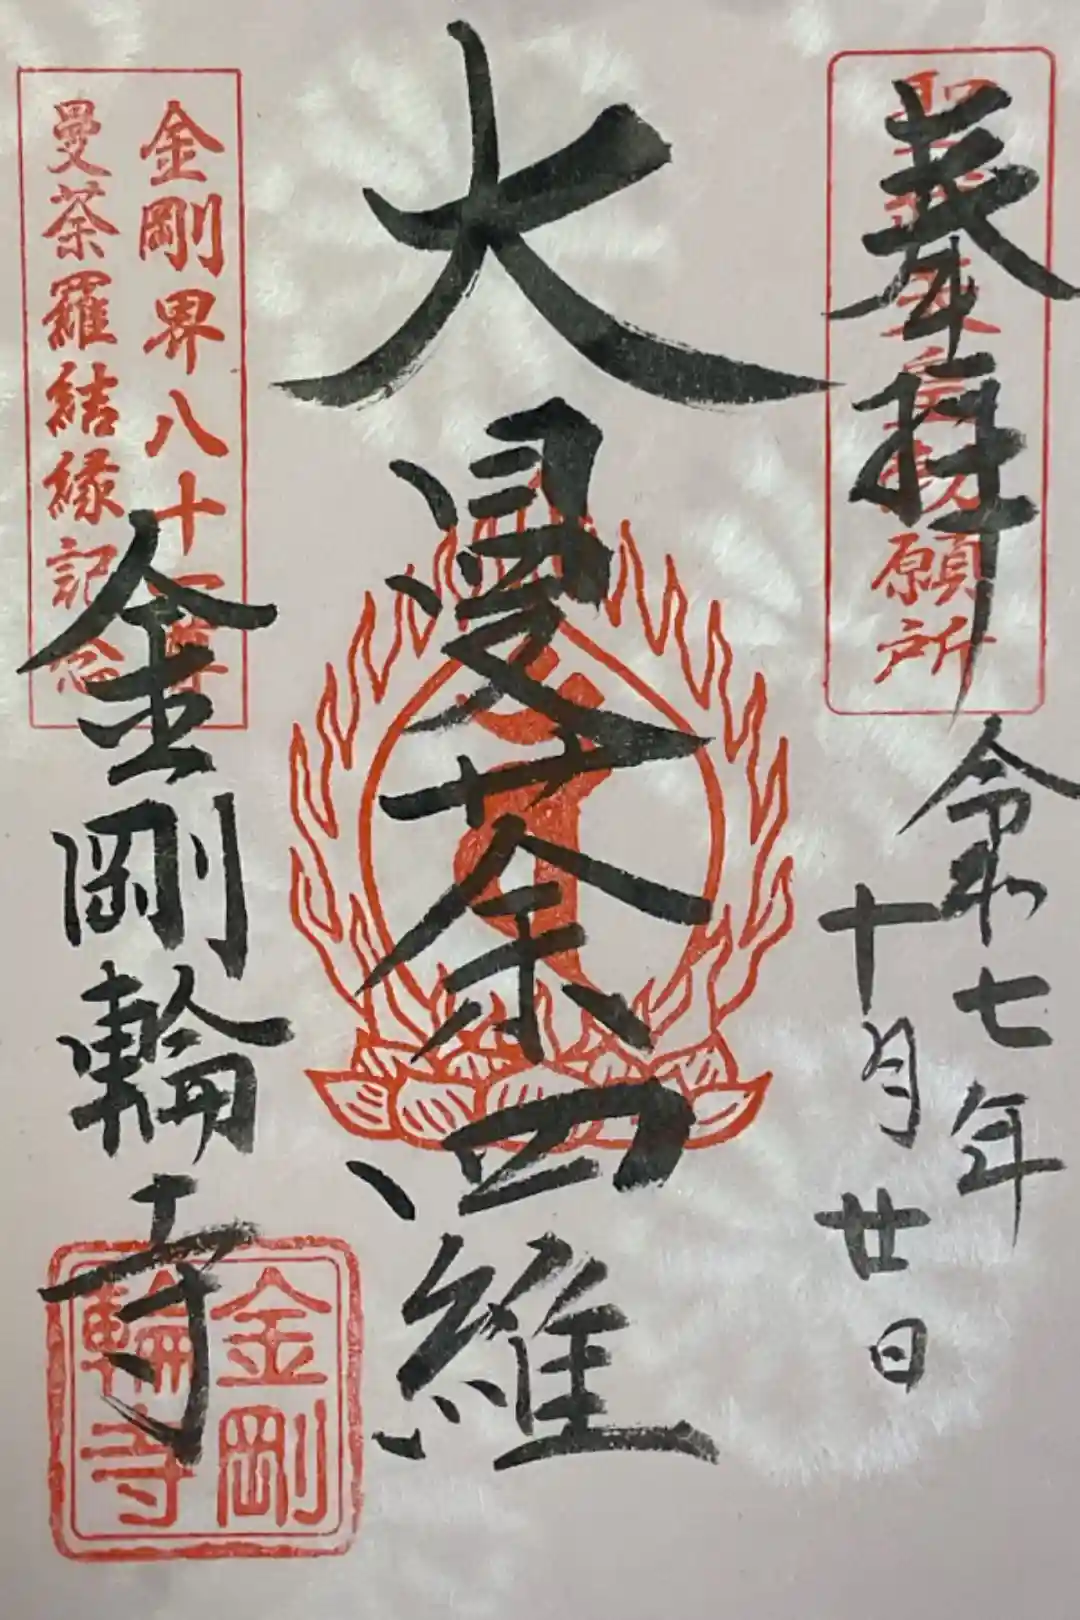 奉拝
聖武天皇勅願所
令和七年
十月廿日
大漫荼羅
金剛界八十一尊
曼荼羅結縁記念
金剛輪寺
金剛
輪寺